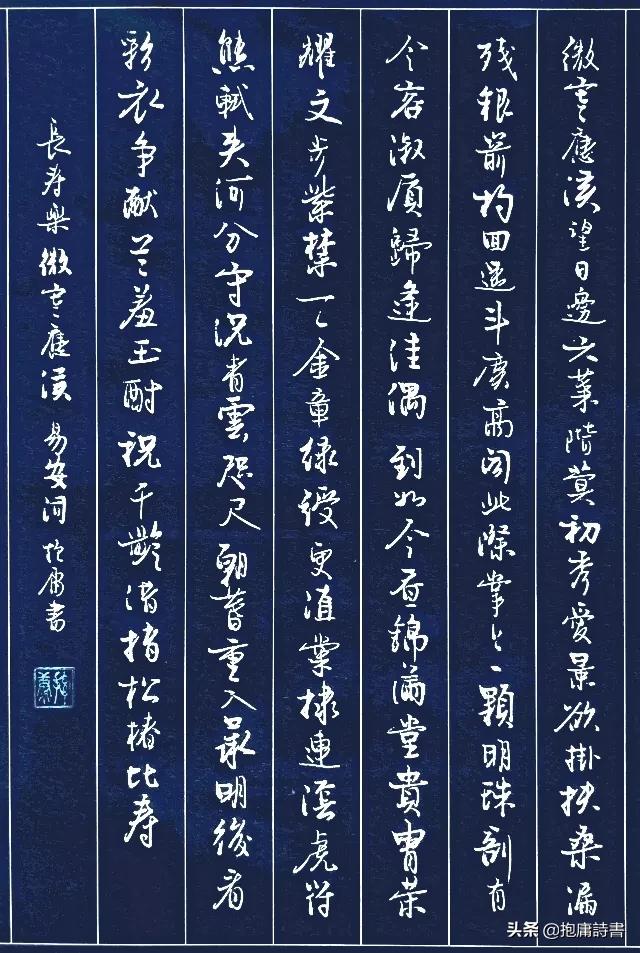 微寒應候望日邊六葉階蓂初秀愛景欲掛扶桑漏
残銀箭杓回遥斗慶高閎此際掌上一顆明珠剖有
令容淑質歸逢佳偶到如今晝錦滿堂貴胄荣
耀文步紫禁一一金章绿綬更值棠棣連陰虎符
熊軾夹河分守况青雲咫尺朝暮重入承明後看
彩衣争献兰羞玉酎祝千齡借指松椿比寿
長寿樂微寒應候 易安詞 抱庸書
头条 @抱庸詩書